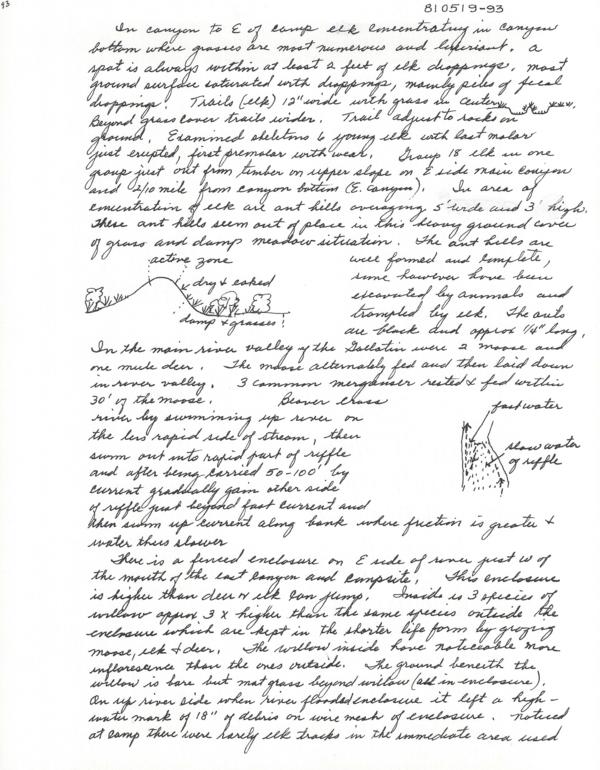 93
810519-93
In canyon to E of camp elk concentrating in canyon
bottom where grasses are most numerous and luxuriant. A
spot is always within at least 2 feet of elk droppings, most
ground surface saturated with droppings, mainly piles of fecal
droppings. Trails (elk) 12" wide with grass in center
Beyond grass cover trails wider. Trail adjust to rocks on
ground. Examined skeletons 6 young elk with last molar
just erupted, first premolar with wear. Group 18 elk in one
group just out from timber on upper slope on E side main canyon
and 2/10 mile from canyon bottom (E. Canyon). In area of
concentration of elk are ant hills averaging 5' wide and 3' high.
These ant hills seem out of place in this heavy ground cover
of grass and damp meadow situation. The ant hills are
well formed and complete,
some however have been
excavated by animals and
trampled by elk. The ants
are black and approx 1/4" long.
active zone
dry & caked
damp & grasses!
In the main river valley of the Gallatin were 2 moose and
one mule deer. The moose alternately fed and then laid down
in river valley. 3 common merganser rested & fed within
30' of the moose. Beaver cross
river by swimming up river on
the less rapid side of stream, then
swim out into rapid part of riffle
and after being carried 50-100' by
current gradually gain other side
of riffle just beyond fast current and
then swim up current along bank where friction is greater &
water thus slower
fast water
slow water
of riffle
There is a fenced enclosure on E side of river just W of
the mouth of the east canyon and campsite. This enclosure
is higher than deer or elk can jump. Inside is 3 species of
willow approx 3 x higher than the same species outside the
enclosure which are kept in the shorter life form by grazing
moose, elk & deer. The willow inside have noticeable more
inflorescence than the ones outside. The ground beneath the
willow is bare but mat grass beyond willow (all in enclosure).
On up river side when river flooded enclosure it left a high-
water mark of 18" of debris on wire mesh of enclosure. Noticed
at camp there were rarely elk tracks in the immediate area used